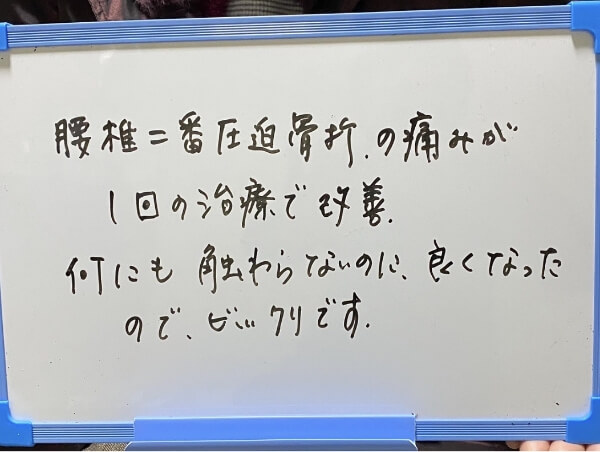 腰椎二番圧迫骨折.の痛みが
1回の治療で改善.
何にも触わらないのに、良くなった
ので、ビックリです.